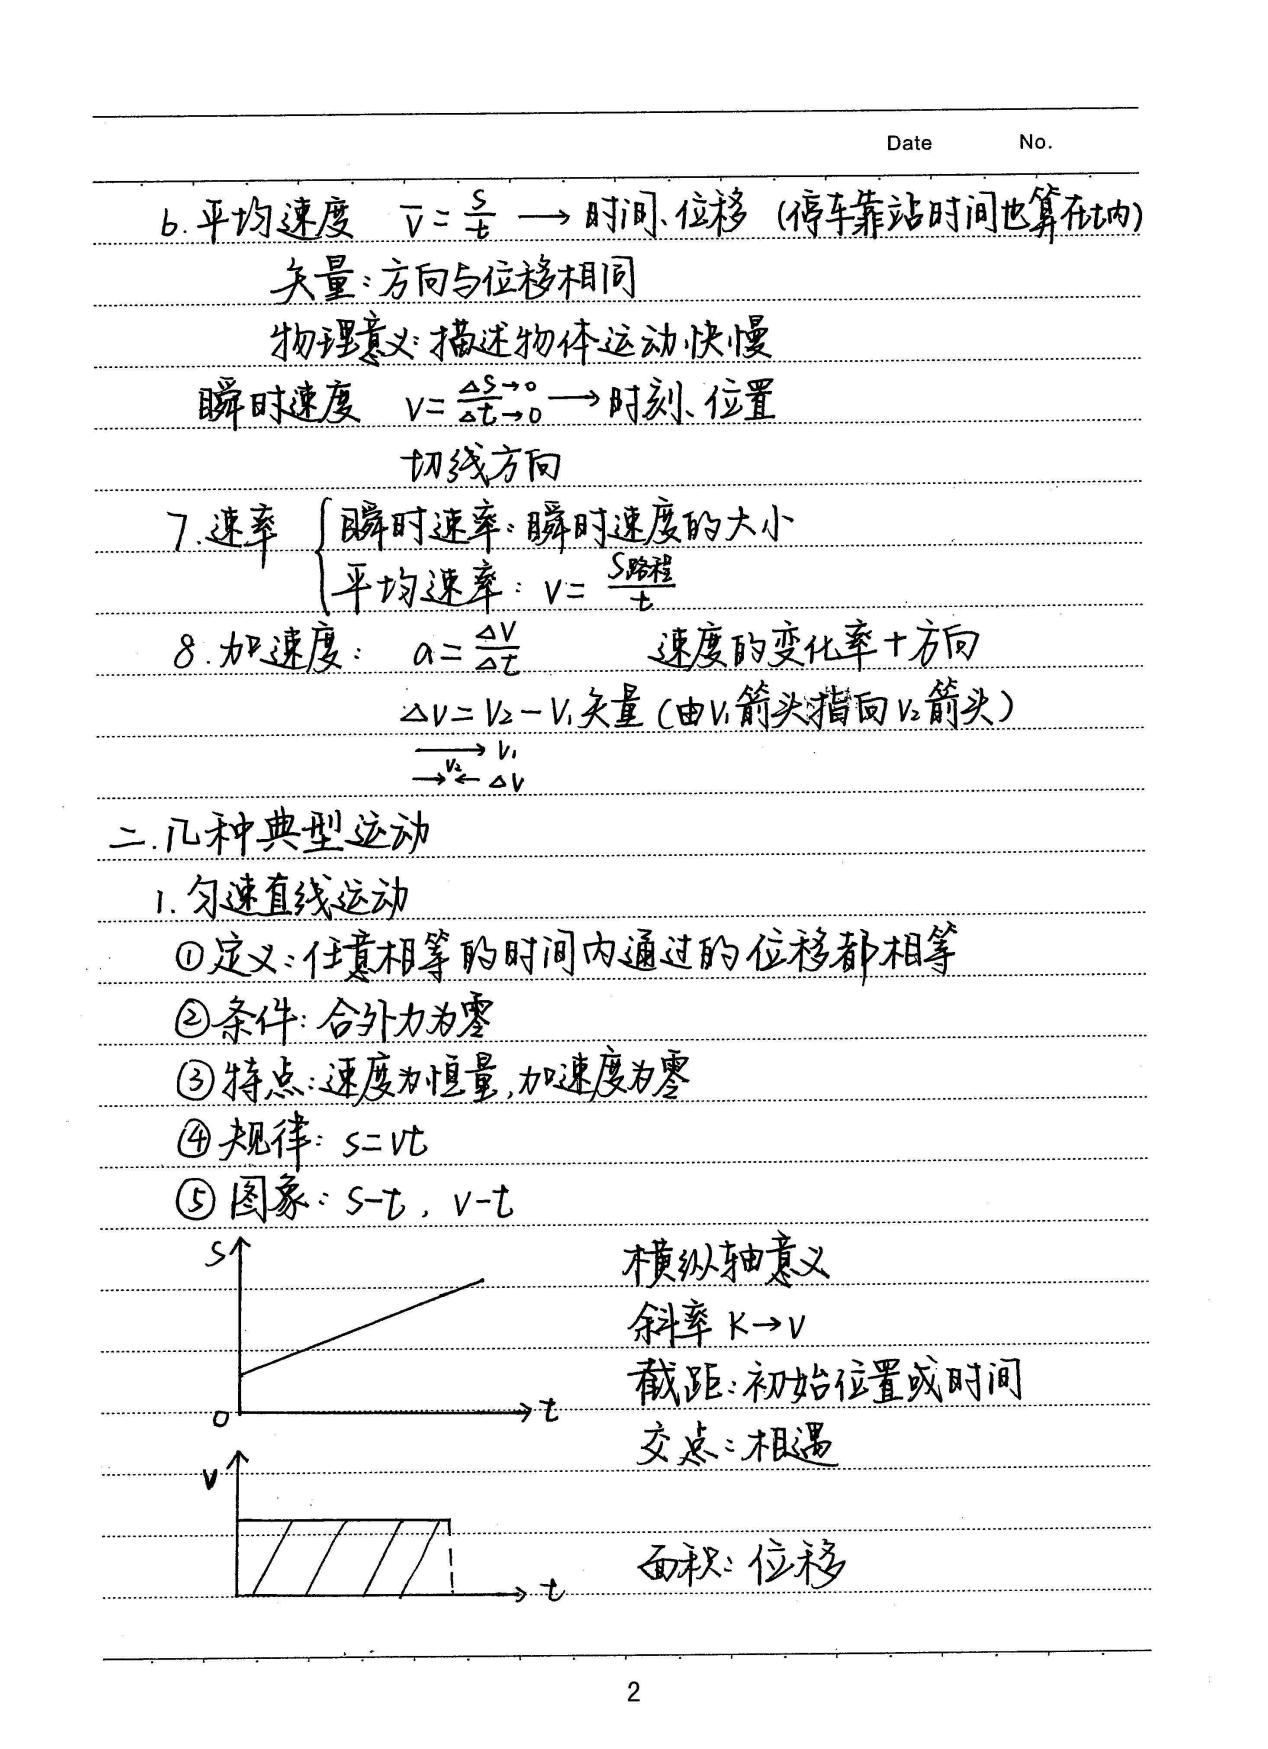 Date No.
6.平均速度 v̅=s/t → 时间、位移 (停车靠站时间也算在t内)
矢量:方向与位移相同
物理意义:描述物体运动快慢
瞬时速度 v=Δs→0/Δt→0 → 时刻、位置
切线方向
7.速率 { 瞬时速率:瞬时速度的大小
平均速率: v=s路程/t
8.加速度: a=Δv/Δt 速度的变化率+方向
Δv=v₂-v₁矢量(由v₁箭头指向v₂箭头)
→ v₁
v₂
→← Δv
二.几种典型运动
1.匀速直线运动
①定义:任意相等的时间内通过的位移都相等
②条件:合外力为零
③特点:速度为恒量,加速度为零
④规律: s=vt
⑤图象: s-t, v-t
s
横纵轴意义
斜率 K→v
截距:初始位置或时间
0 t
交点:相遇
v
面积:位移
t
2